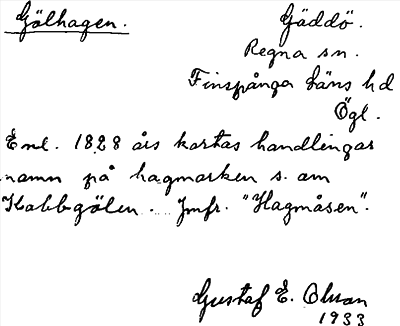 Gölhagen.
Gäddö.
Regna sn.
Finspånga läns hd
Ögl.
Enl. 1828 års kartas handlingar
namn på hagmarken s. om
Kabbgölen. Jmfr. "Hagmåsen".
Gustaf E. Olsson
1933